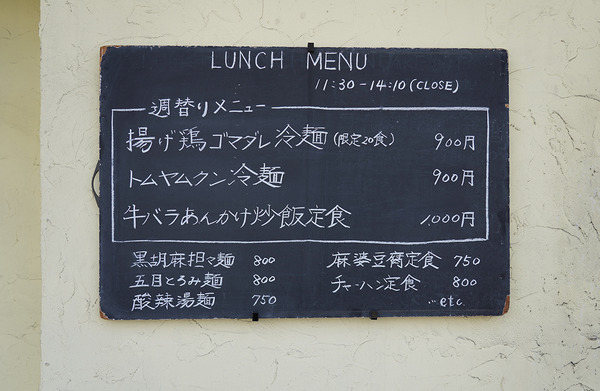 LUNCH MENU
11:30-14:10 (CLOSE)
週替りメニュー
揚げ鶏ゴマダレ冷麺 (限定20食) 900円
トムヤムクン冷麺 900円
牛バラあんかけ炒飯定食 1,000円
黒胡麻担々麺 800
五目とろみ麺 800
酸辣湯麺 750
麻婆豆腐定食 750
チャーハン定食 800
...etc.